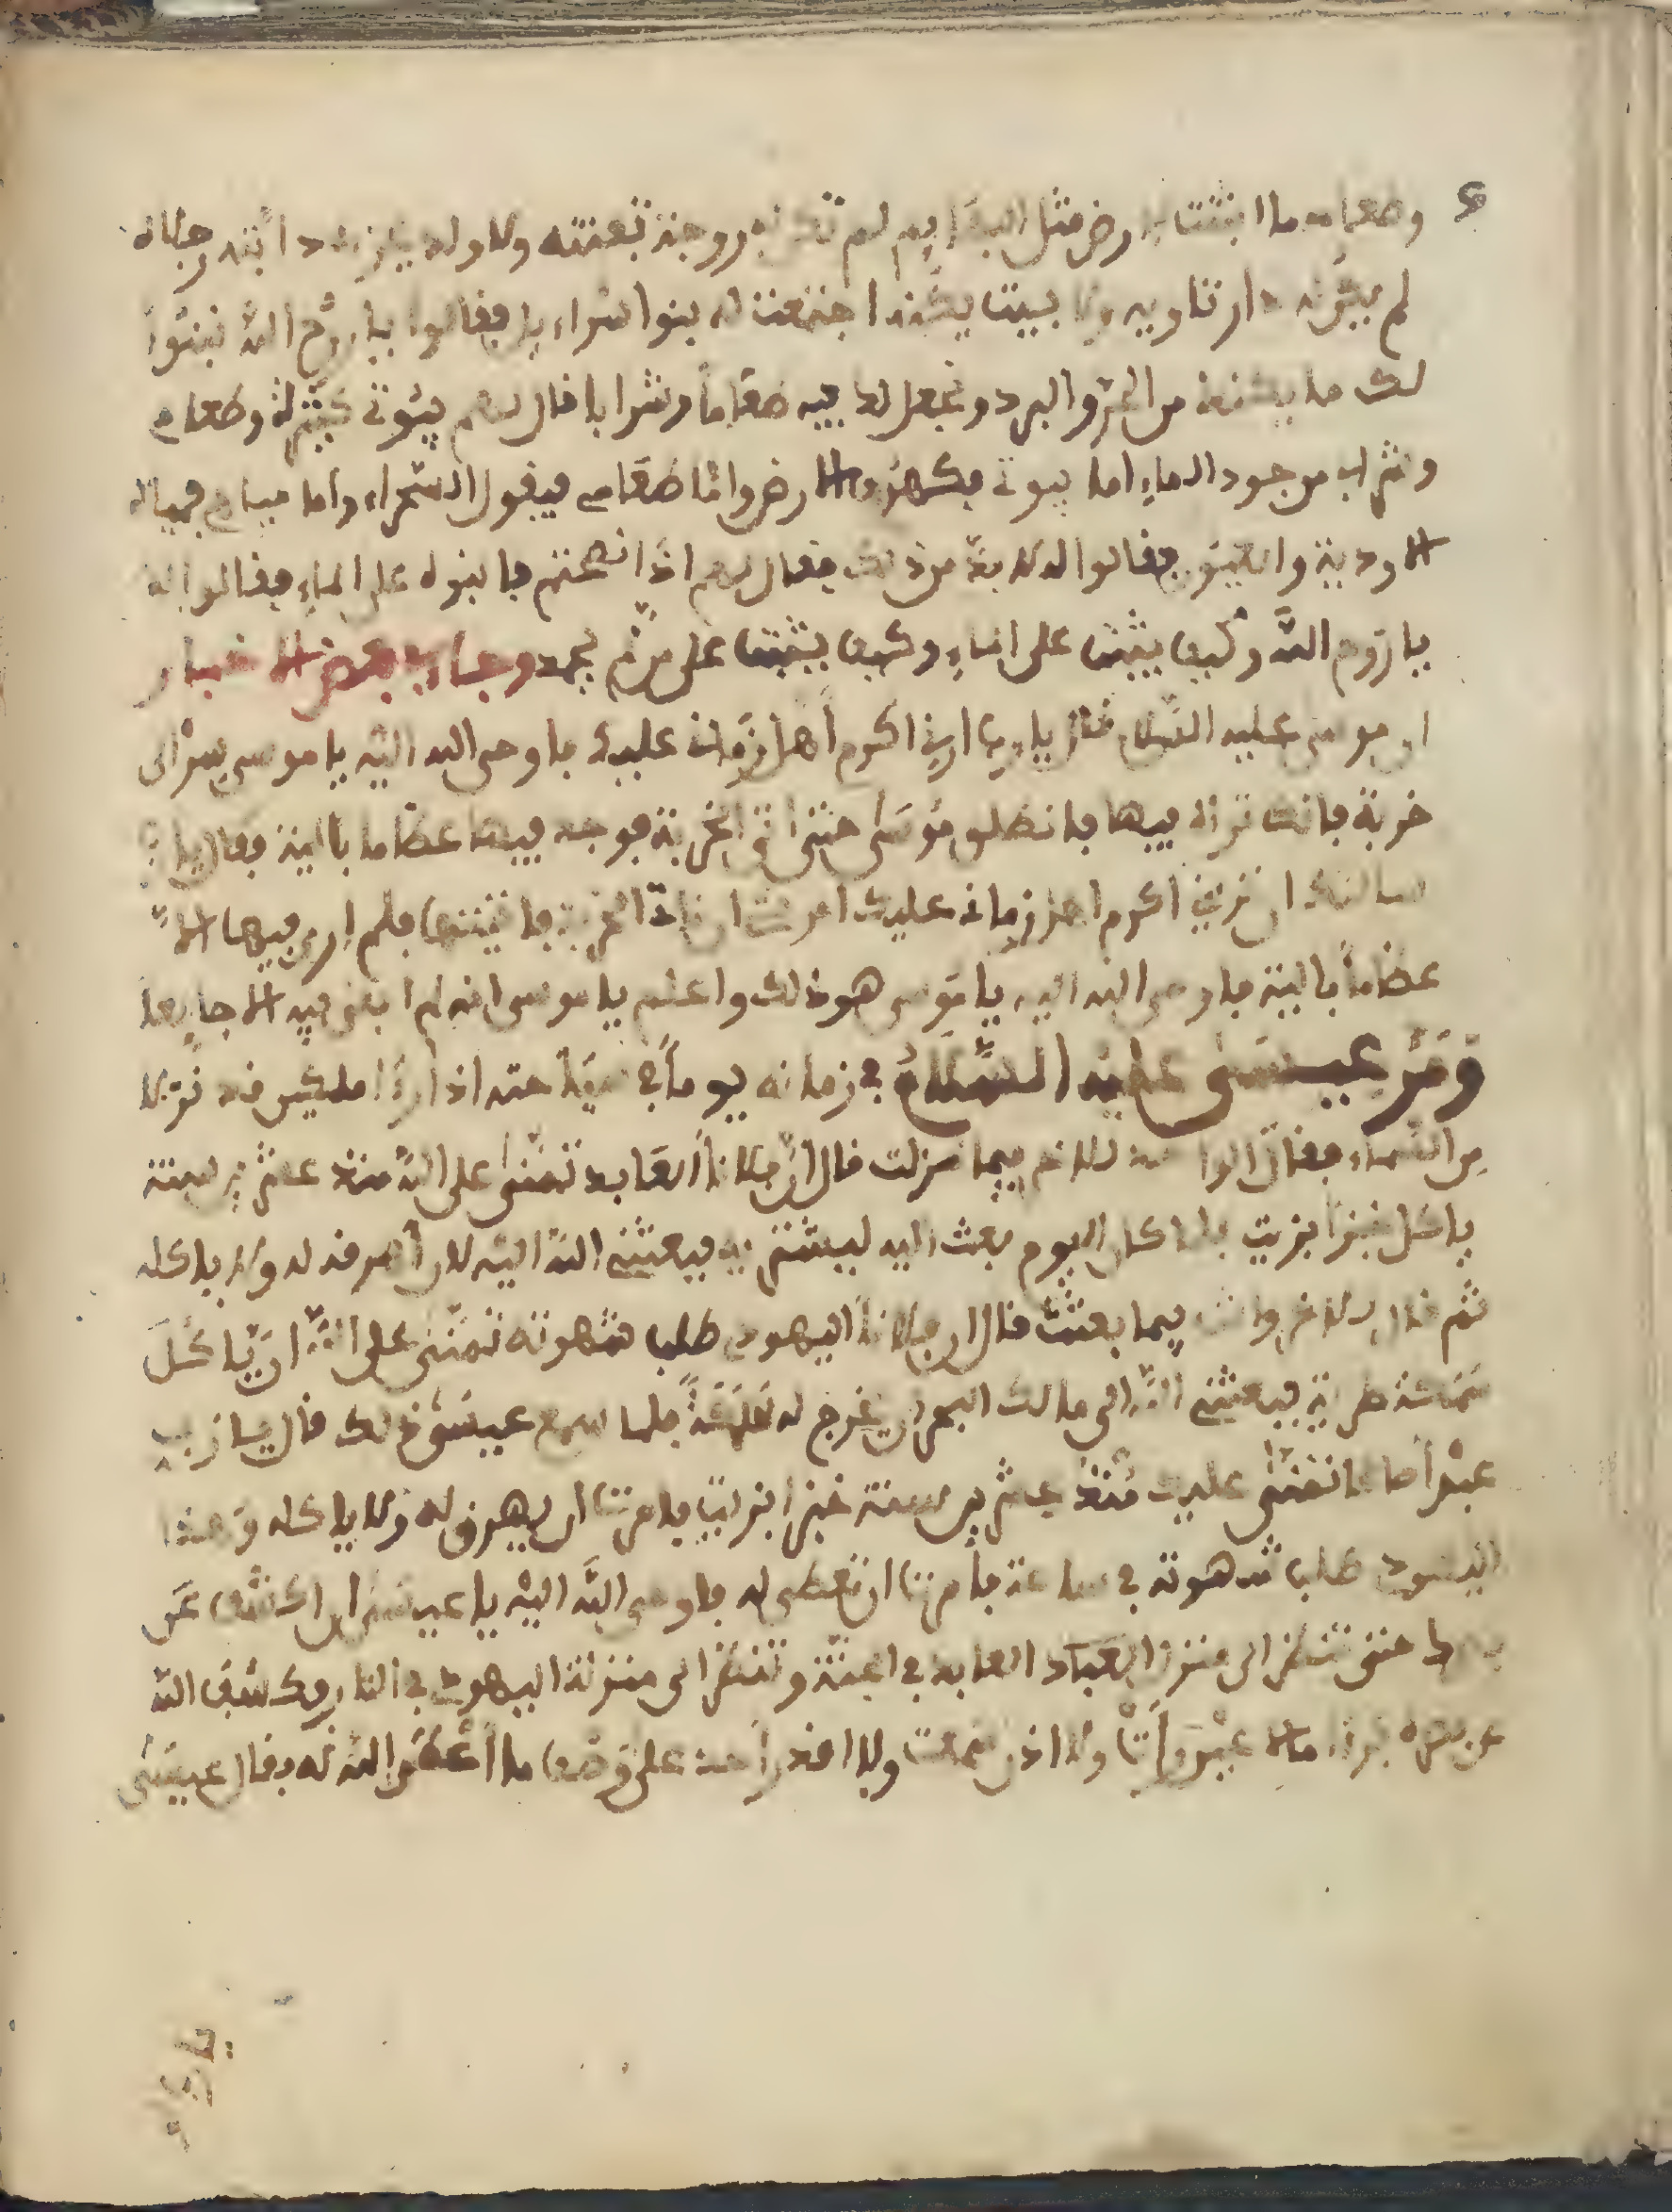 وطعامه ما انبتت الارض مثل البهايم لم تكن له زوجة تفتنه ولا ولد يحزنه دابته رجلاه
لم يكن له دار تاويه ولا بيت يكنه اجتمعت له بنوا اسراءيل فقالوا يا روح الله نبنوا
لك ما يكنك من الحر والبرد ونجعل لك فيه طعاما وشرابا قال لهم بيوتي كثيرة وطعامي
وشرابي موجود الماء اما بيوتي فكهوف الارض واما طعامي فبقول الصحراء واما مياهي فمياه
الاودية والعيون فقالوا له لا بد من ذلك فقال لهم اذا انهيتم فابنوه على الماء فقالوا له
يا روح الله وكيف يثبت على الماء وكيف يثبت على من لم يجمد وجاء في بعض الاخبار
ان موسى عليه السلام قال يا رب ارني اكرم أهل زمانه عليك فاوحى الله اليه يا موسى سر الى
خربة فانت تراه فيها فانطلق موسى حتى اتى الخربة فوجد فيها عظاما بالية فقال يا رب
سالتك ان تريني اكرم اهل زمانه عليك امرتني ان ناتي الخربة فاتيتها فلم ار فيها الا
عظاما بالية فاوحى الله اليه يا موسى هو ذلك واعلم يا موسى انه لم ابقى فيه الا جايعا
ومر عيسى عليه السلام في زمانه يوما في سياحته اذ رأى ملكين قد نزلا
من السماء فقال الواحد للاخر فيما نزلت قال ان فلانا العابد تمنى على الله منذ عشرين سنة
ياكل خبزا بزيت فلما كان اليوم بعث اليه ليشتريه فبعثني الله اليه لان أهرقه له ولا ياكله
ثم قال للاخر وانت فيما بعثت قال ان فلانا اليهودي طلب شهوته تمنى على الله ان ياكل
سمكة طرية فبعثني الله الى مالك البحر ان يخرج له سمكة فلما سمع عيسى ذلك قال يا رب
عبدك ما تمنى عليك منذ عشرين سنة خبزا بزيت فامرت ان يهرق له ولا ياكله وهذا
اليهودي طلب شهوته في ساعة فأمرت ان تعطى له فاوحى الله اليه يا عيسى ان اكشف عن
حتى تنظر الى منزلة العابد في الجنة وتنظر الى منزلة اليهودي في النار فكشف الله
عن بصره فرأى ما لا عين رأت ولا اذن سمعت ولا اقدر أحد على وصف ما أعطى الله له فقال عيسى